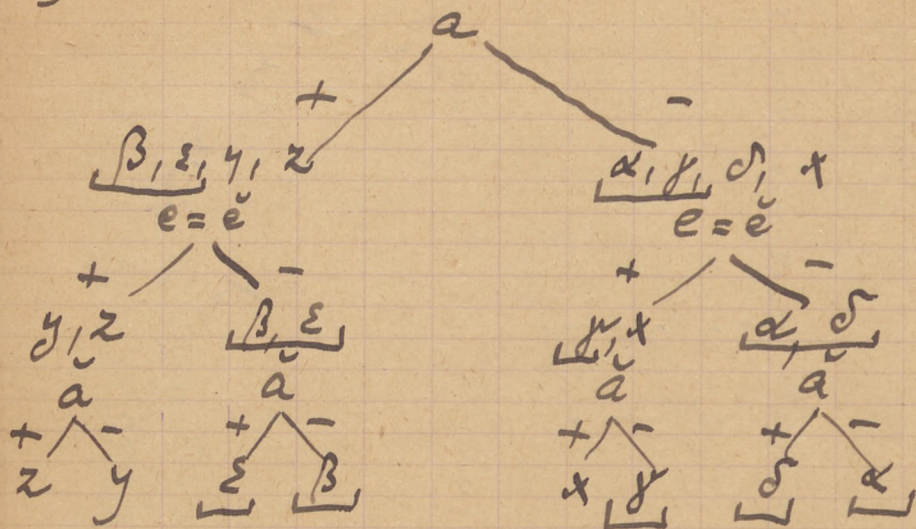 a
+ −
β, ε, y, z α, γ, δ, x
e = ĕ e = ĕ
+ − + −
y, z β, ε γ, x α, δ
ă ă ă ă
+ − + − + − + −
z y ε β x γ δ α